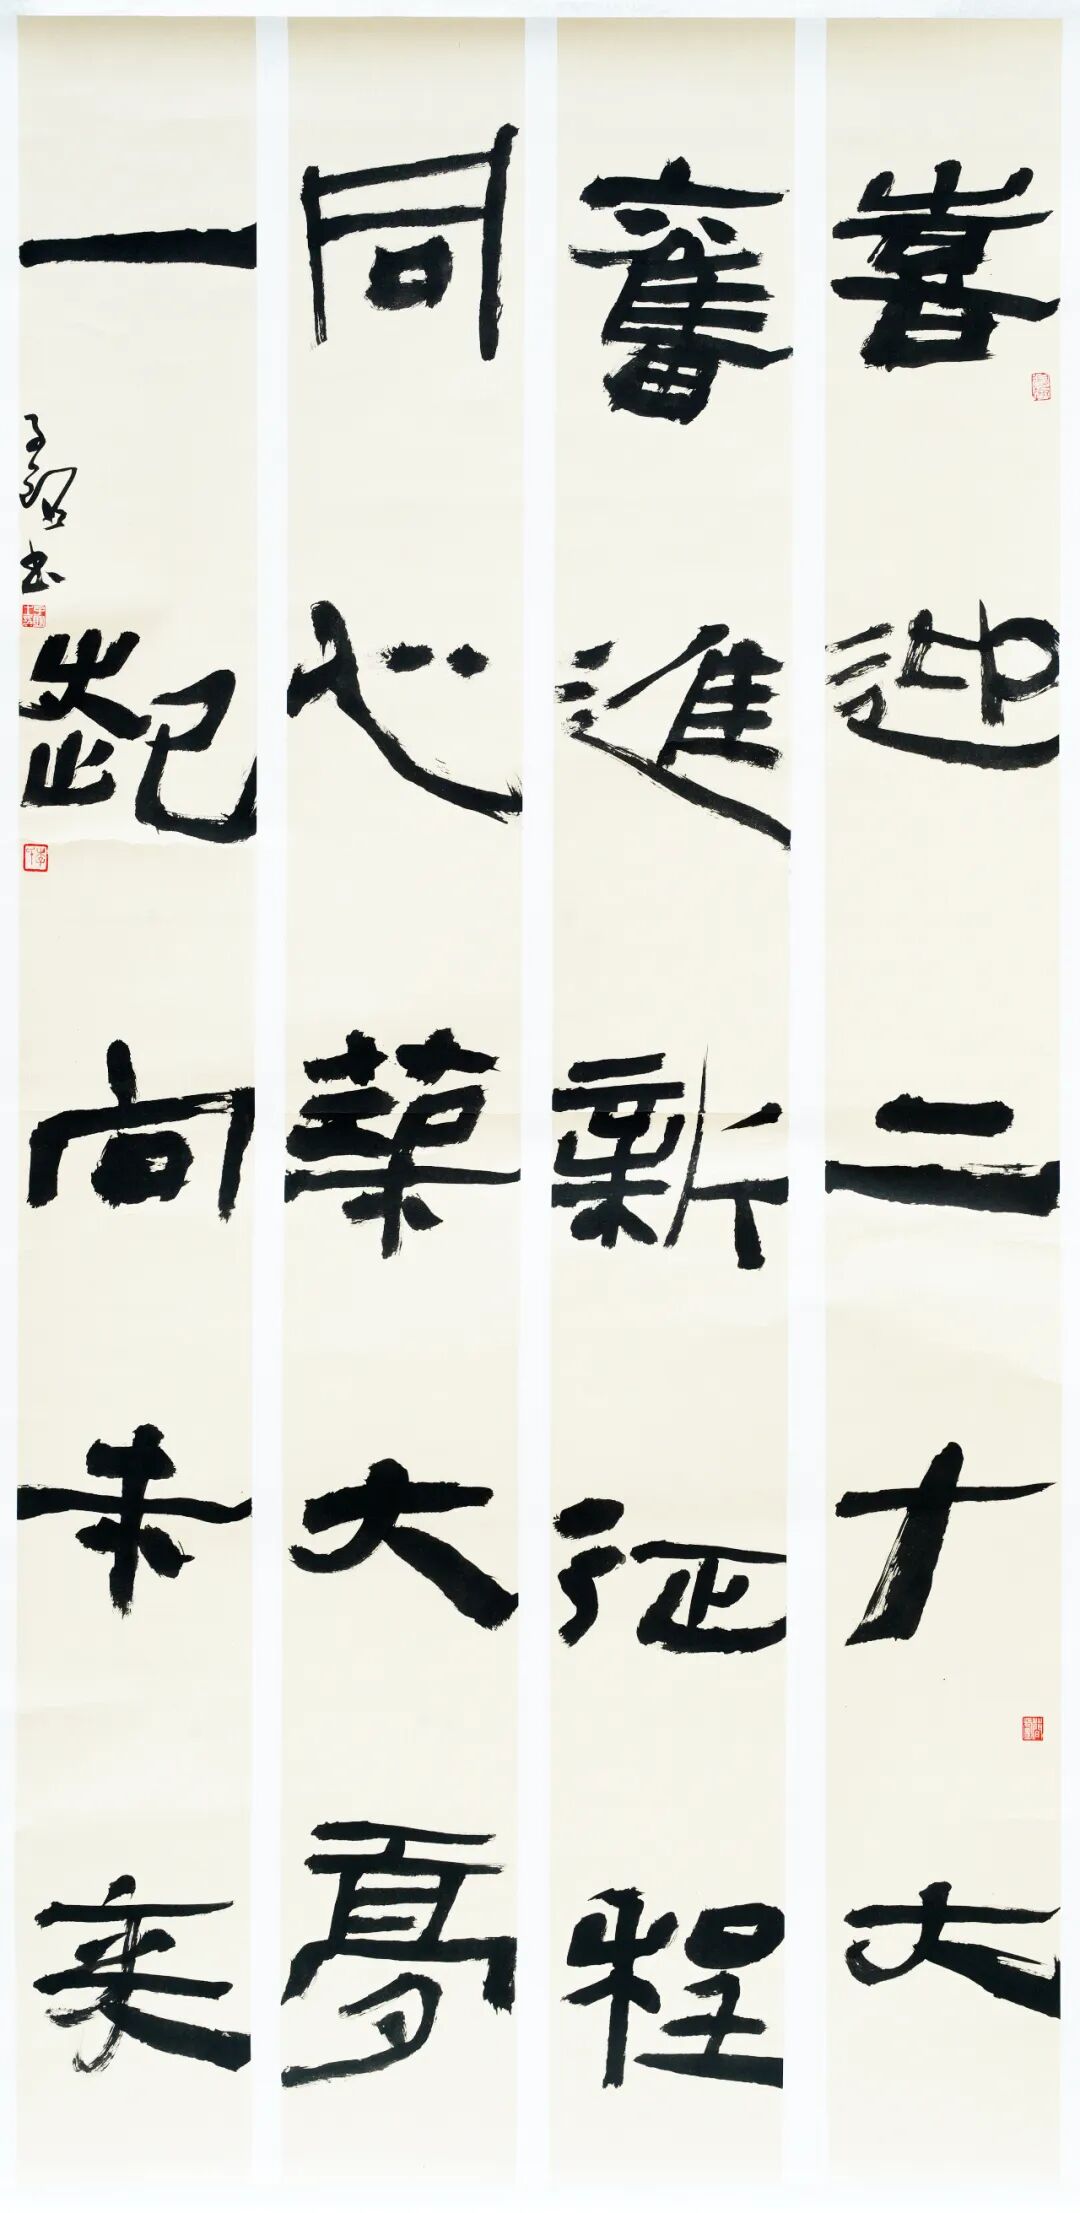 喜迎二十大
奮進新征程
同心築大夢
一起向未来
書